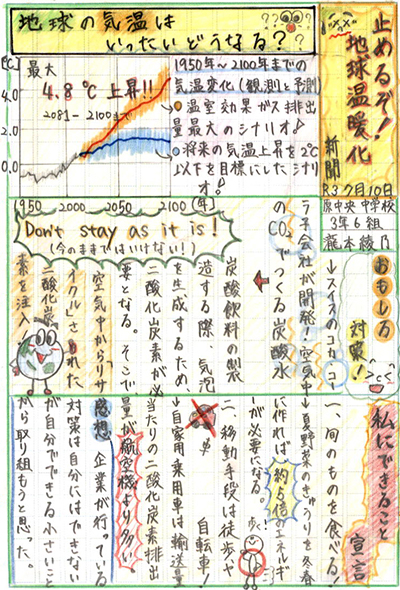 止めるぞ!
地球温暖化
新聞
R3 7月10日
原中央中学校
3年6組
瀧本綾乃
地球の気温は
いったいどうなる?
[℃]
4.0
2.0
0.0
最大
4.8℃上昇!!
2081-2100まで
1950
2000
2050
2100
(年)
1950年~2100年までの
気温変化(観測と予測)
●温室効果ガス排出
量最大のシナリオ♪
●将来の気温上昇を2℃
以下を目標にしたシナリ
オ♪
Don't stay as it is!
(今のままではいけない!)
おもしろ
対策!
↓スイスのコカ・コー
ラ子会社が開発!空気中
のCO₂でつくる炭酸水
炭酸飲料の製
造する際、気泡
を生成するため、
二酸化炭素が必
要となる。そこで
空気中からリサ
イクルされた
二酸化炭
素を注入!
私にできること
宣言
一、旬のものを食べる!
↓夏野菜のきゅうりを冬春
に作れば約5倍エネルギー
が必要になる。
二、移動手段は徒歩や
自転車!
↓自家用乗用車は輸送量
当たりの二酸化炭素排出
量が航空機より多い。
感想 企業が行っている
対策は自分にはできない
が自分でできる小さいこと
から取り組もうと思った。